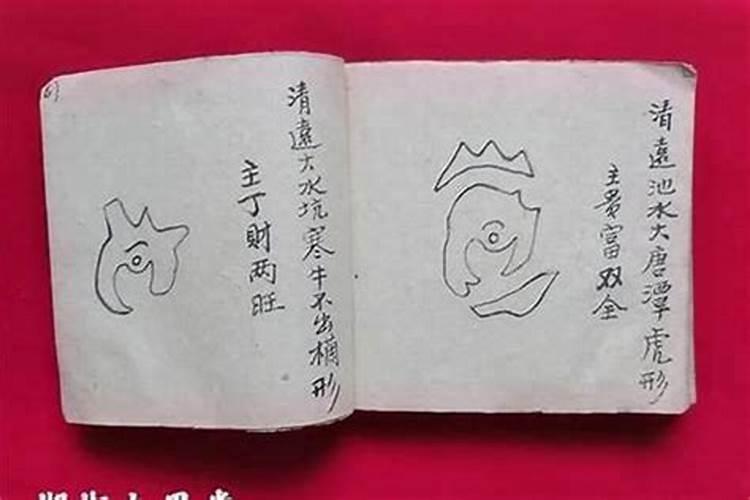 清遠池水大唐潭虎形
主貴富双全
清遠大水坑寒牛不出欄形
主丁財两旺